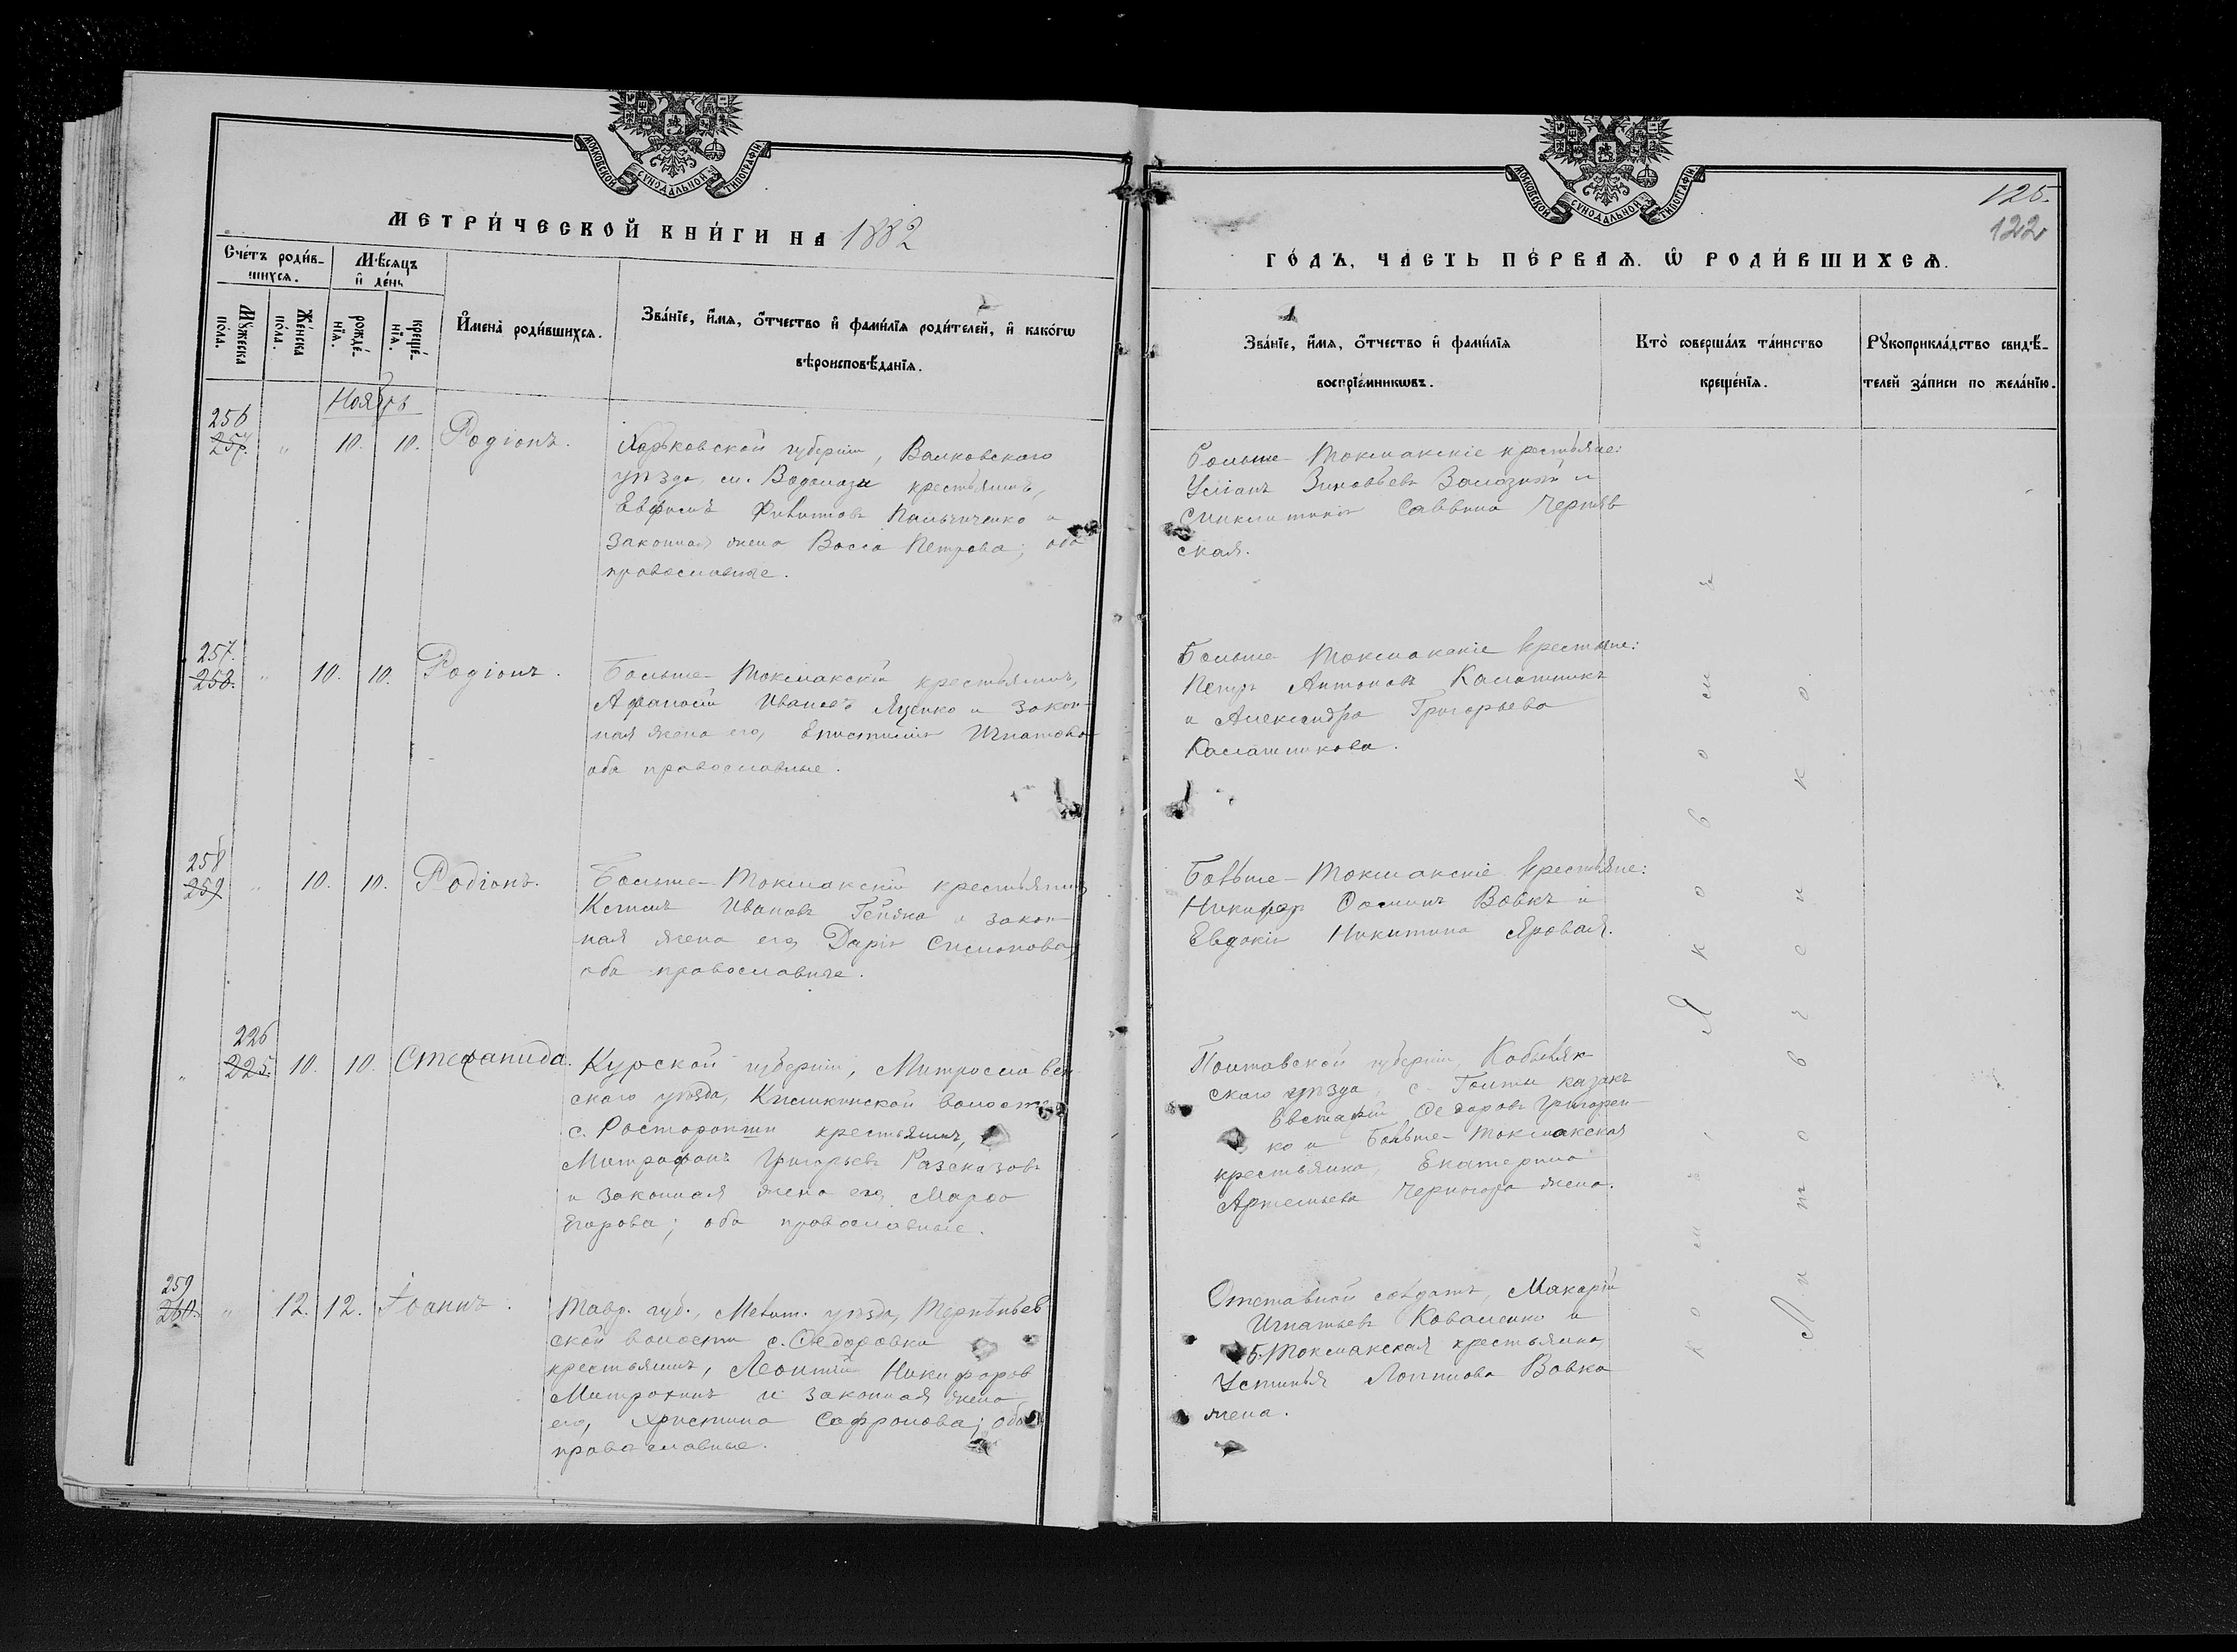 МОСКОВСКОЙ СѴНОДАЛЬНОЙ ТИПОГРАФІИ
МЕТРИ́ЧЕСКОЙ КНИ́ГИ НА 1882
Сче́тъ роди́в-
шихся.
Мѣ́сяцъ
и҆ де́нь
Мꙋ́жеска
по́ла.
Же́нска
по́ла.
рожде́-
нїя.
креще́-
нїя.
И҆мена̀ роди́вшихся.
Зва́нїе, и҆́мя, ѻ҆́тчество и҆ фами́лїя роди́телей, и҆ како́гѡ
вѣроисповѣ́данїя.
Ноябрь
256
257. " 10. 10. Родіонъ.
Харьковской губерніи, Валковскаго
уѣзда, сл. Водолаги крестьянинъ,
Евфимъ Пальчиченко и
законная жена Васса Петрова; оба
православные.
257.
258. " 10. 10. Родіонъ.
Больше-Токмакскій крестьянинъ,
Афанасій Ивановъ Яценко и закон-
ная жена его, Епистимія Игнатова
оба православные.
258
259 " 10. 10. Родіонъ.
Больше-Токмакскій крестьянинъ
Ивановъ и закон-
ная жена его, Дарія Симонова,
оба православные.
226
" 225. 10. 10. Стефанида.
Курской губерніи,
скаго уѣзда, волости
с. Расторопши крестьянинъ,
Митрофанъ Григорьевъ Разсказовъ
и законная жена его, Марфа
Егорова; оба православные.
259
260. " 12. 12. Іоаннъ.
Тавр. губ., Мелит. уѣзда, Терпѣньев
ской волости с. Ѳедоровки
крестьянинъ, Леонтій Никифоровъ
Митрохинъ и законная жена
его, Христина Сафронова; оба
православные.
МОСКОВСКОЙ СѴНОДАЛЬНОЙ ТИПОГРАФІИ
125.
122
ГО́ДЪ, ЧА́СТЬ ПЕ́РВАЯ. Ѡ҆ РОДИ́ВШИХСЯ.
Зва́нїе, и҆́мя, ѻ҆́тчество и҆ фами́лїя
воспрїе́мникѡвъ.
Кто̀ соверша́лъ та́инство
креще́нїя.
Рꙋкоприкла́дство свидѣ́-
телей за́писи по жела́нїю.
Больше-Токмакскіе крестьяне:
Зиновьевъ и
Саввина Черняв
ская.
Больше Токмакскіе крестьяне:
Петръ Антоновъ Калашникъ
и Александра Григорьева
Калашникова.
Больше-Токмакскіе крестьяне:
Никифоръ Вовкъ и
Евдокія Никитина Яровая.
Полтавской губерніи, Кобыляк-
скаго уѣзда, с. казакъ
Евстафій Ѳедоровъ Григорен-
ко и Больше-Токмакская
крестьянка, Екатерина
Артемьева Черногора жена.
Отставной солдатъ, Макарій
Игнатьевъ Коваленко и
Б.Токмакская крестьянка,
Устинья Логинова Вовка
жена.